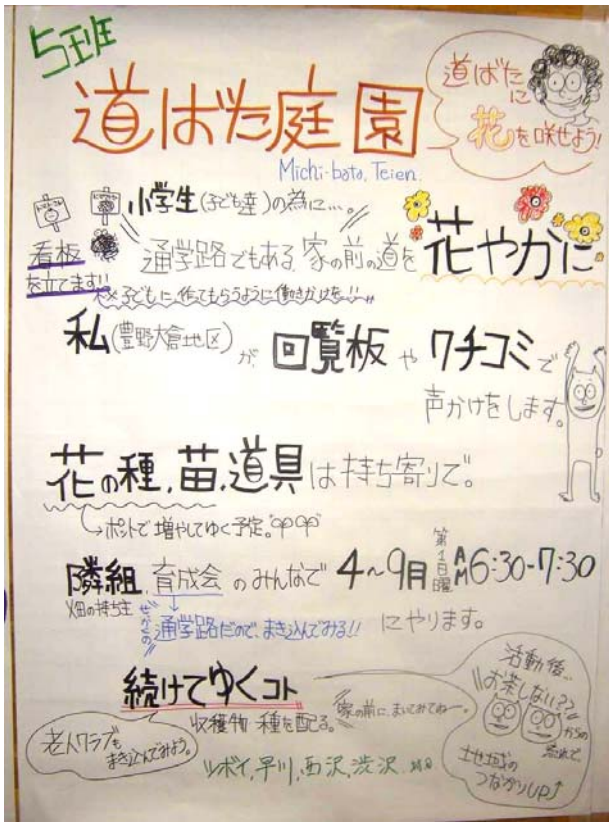 5班
道ばた庭園
Michi-bata, Teien.
道ばたに
花を咲せよう!
小学生(子ども達)の為に…。
通学路でもある家の前の道を花やかに
看板を立てます!!
子どもに作ってもらうように働きかけを!!
私(豊野大倉地区)が回覧板やクチコミで
声かけをします。
花の種,苗,道具は持ち寄りで。
→ポットで増やしてゆく予定。
隣組,育成会のみんなで4~9月第1日曜AM6:30-7:30
畑の持ち主
せっかくの通学路だので、まき込んでみる!!
にやります。
続けてゆくコト
収穫物 種を配る。
家の前に、まいてみてねー。
老人クラブもまき込んでみよう。
活動後…
お茶しない??
からの
流れで、
地域の
つながりUP↑
ツボイ,早川,西沢,渋沢